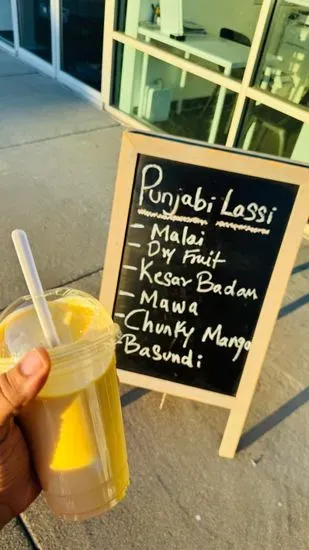 Punjabi Lassi
- Malai
- Dry Fruit
- Kesar Badam
- Mawa
- Chunky Mango
Basundi